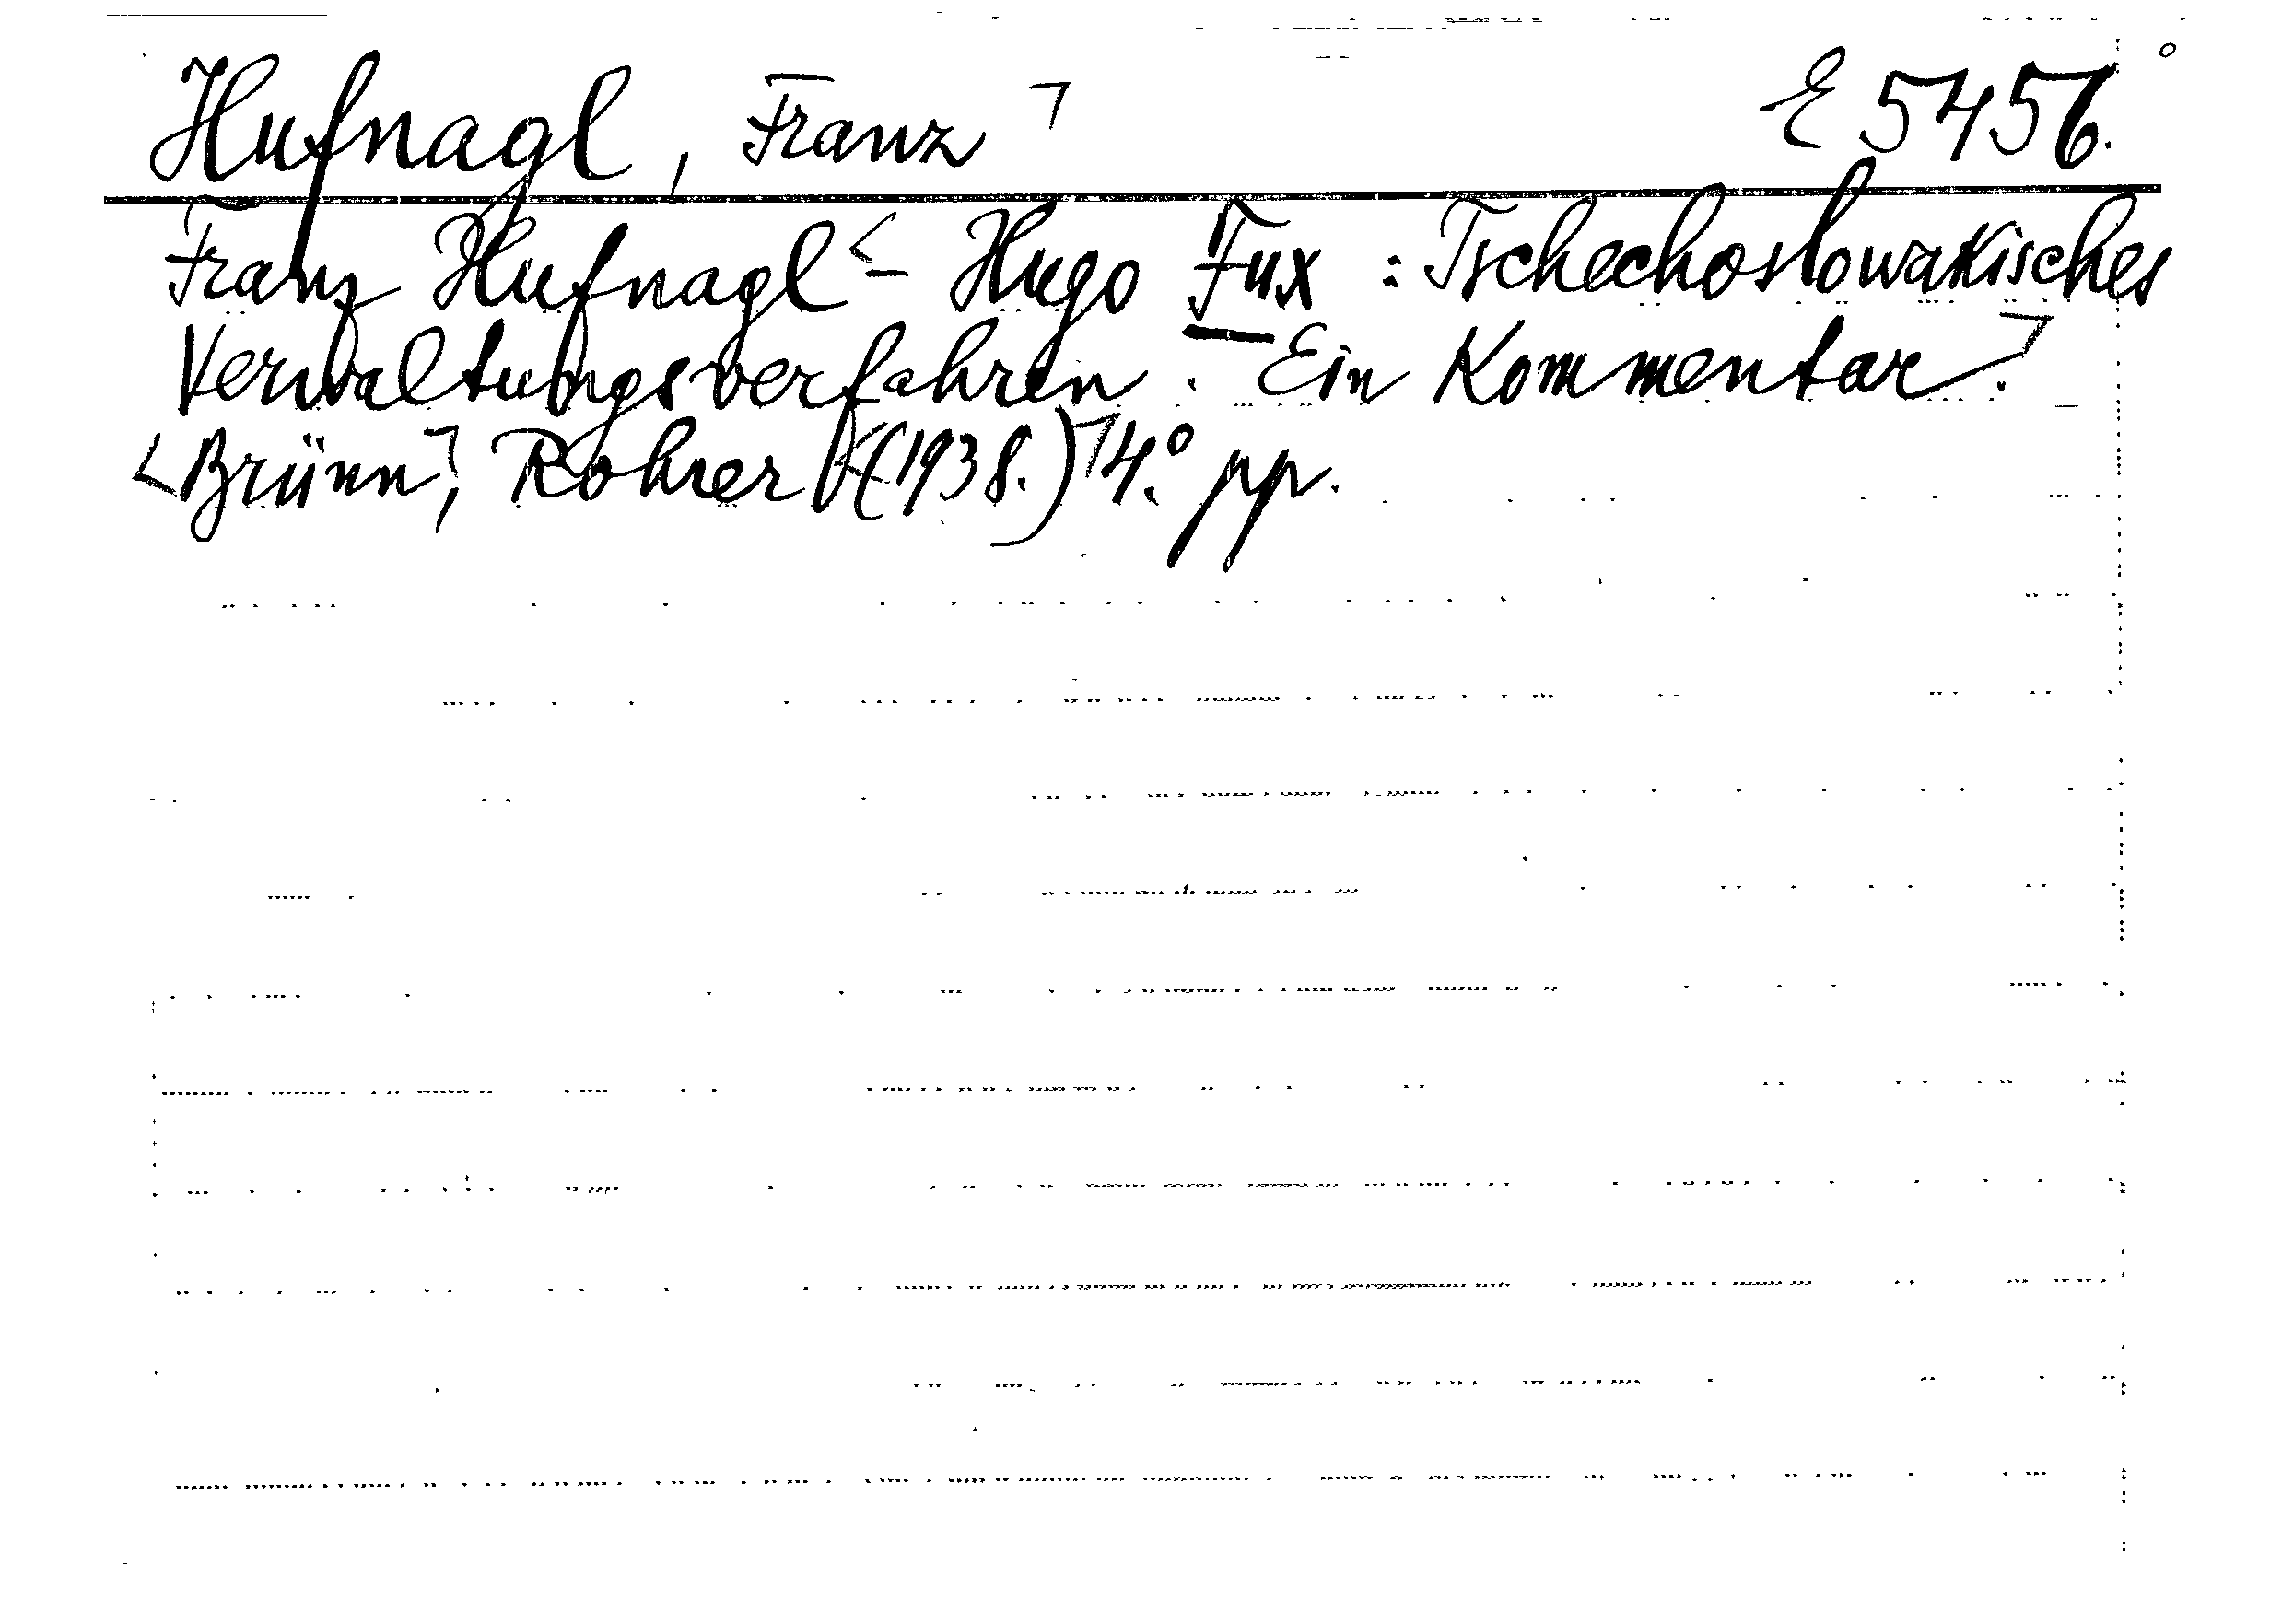 Hufnagl, Franz ⌝ E 5456.
Franz Hufnagl < – Hugo Fux : Tschechoslowakisches
Verwaltungsverfahren. Ein Kommentar ⌝.
< Brünn ⌝, Rohrer < (1938.) ⌝ 4.° pp.